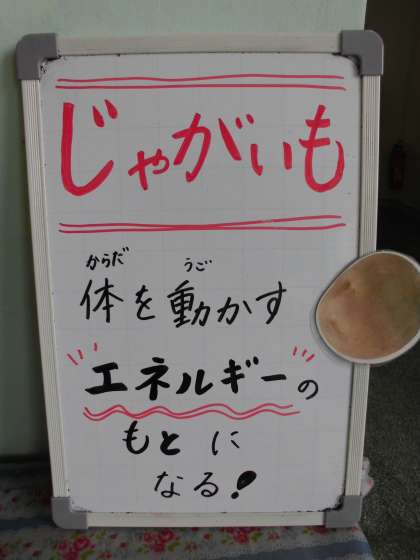 じゃがいも
からだ うご
体を動かす
エネルギーの
もとに
なる!